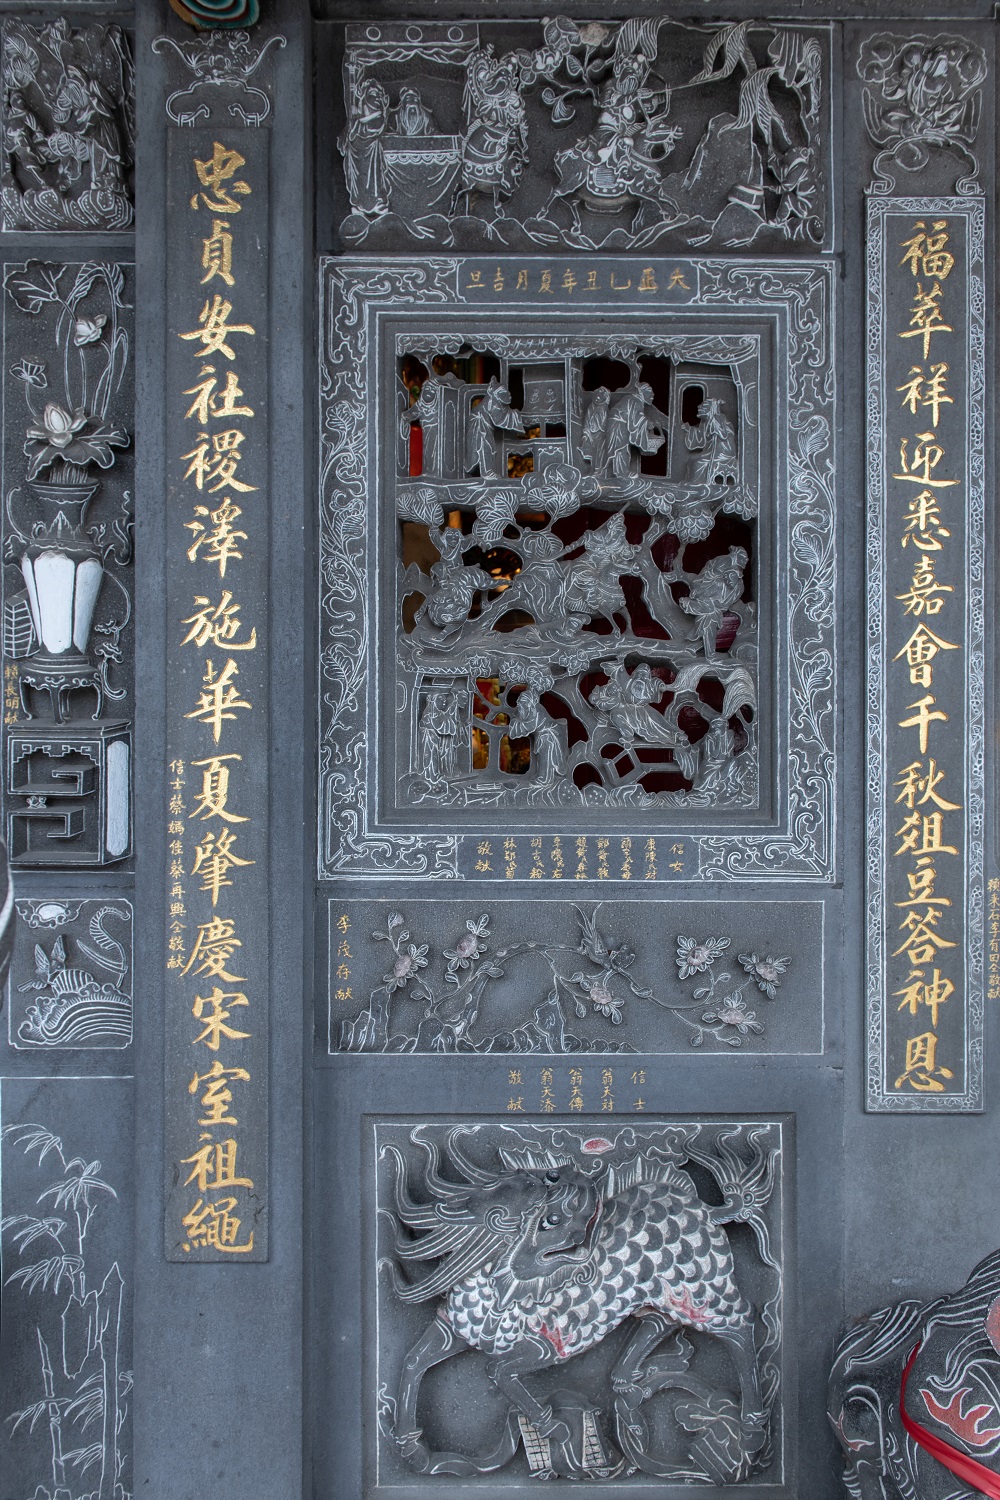 福萃祥迎悉嘉會千秋俎豆答神恩
天運乙丑年夏月吉旦
忠貞安社稷澤施華夏肇慶宋室祖繩
李茂存献
信女
敬献
信士
翁天對
翁天傳
翁天添
敬献
信士蔡嬌佳蔡再興仝敬献
賴長明献